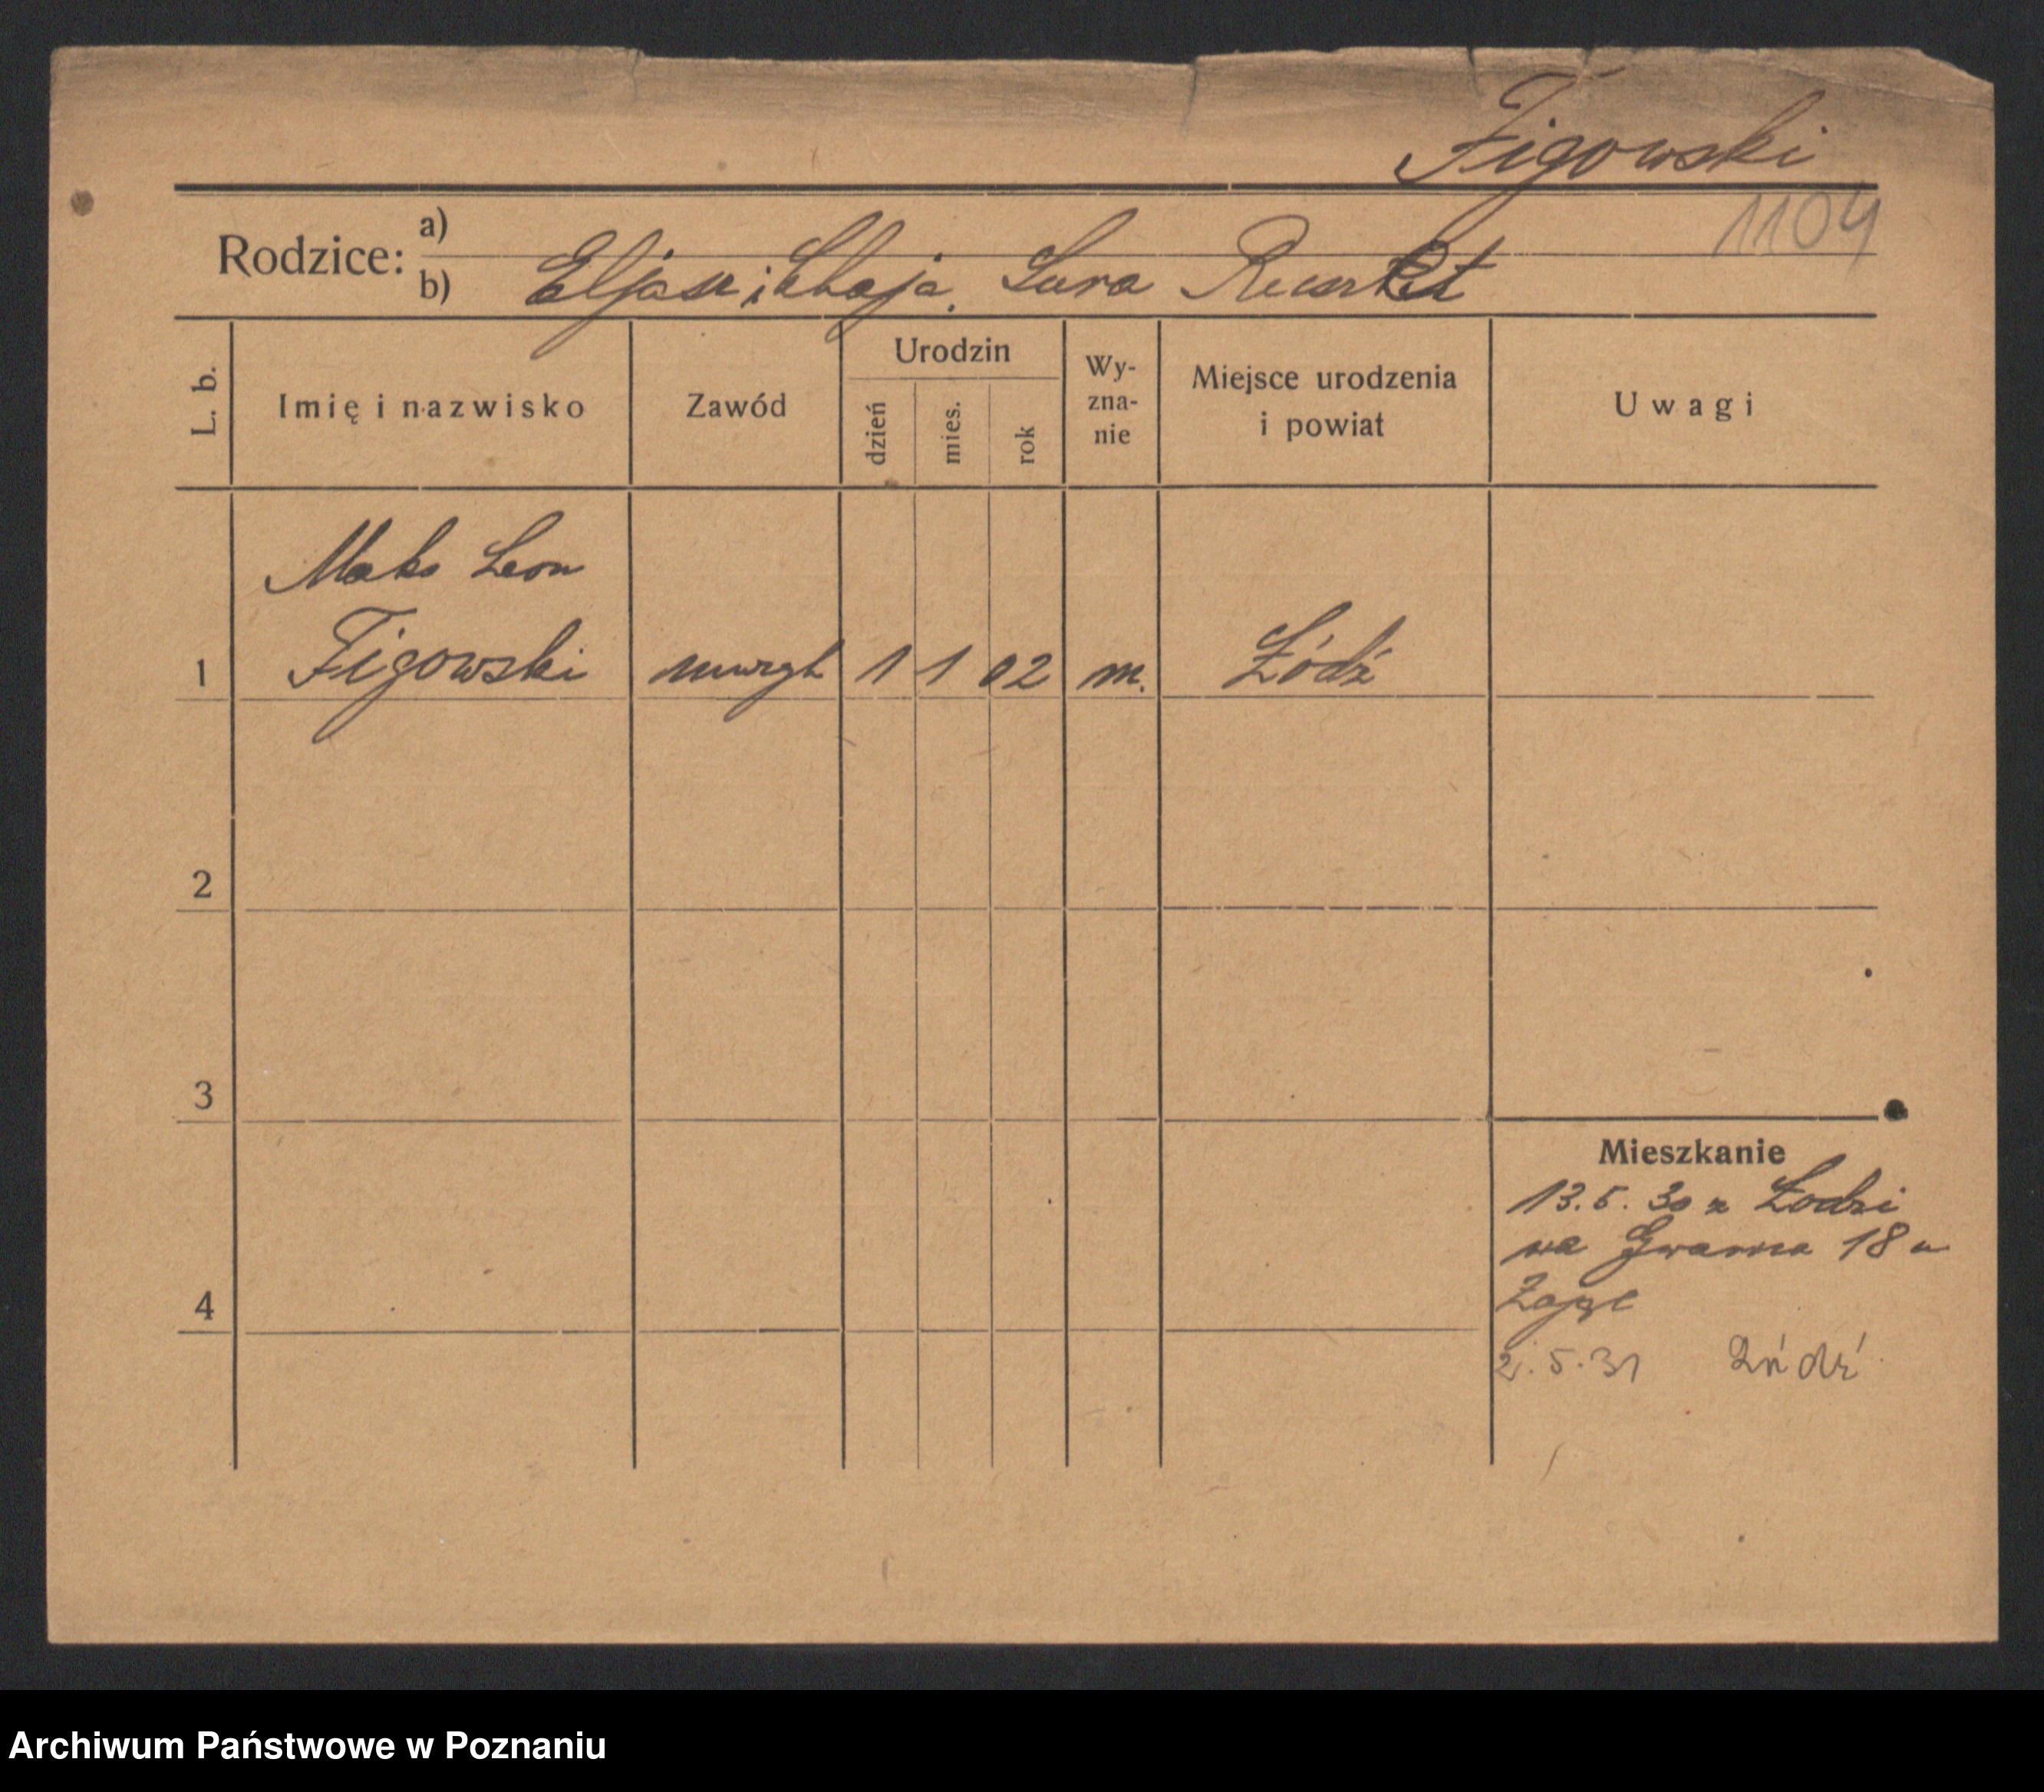 Figowski
1104
Rodzice: a)
b) Eljasz i Chaja Sura
L. b. Imię i nazwisko Zawód Urodzin dzień mies. rok Wy-zna-nie Miejsce urodzenia i powiat Uwagi
Maks Leon
1 Figowski muzyk 1 1 02 m. Łódź
2
3
Mieszkanie
13.5.30 z Łodzi
na Gwarna 18 u
4
2.5.31 Łódź
Archiwum Państwowe w Poznaniu